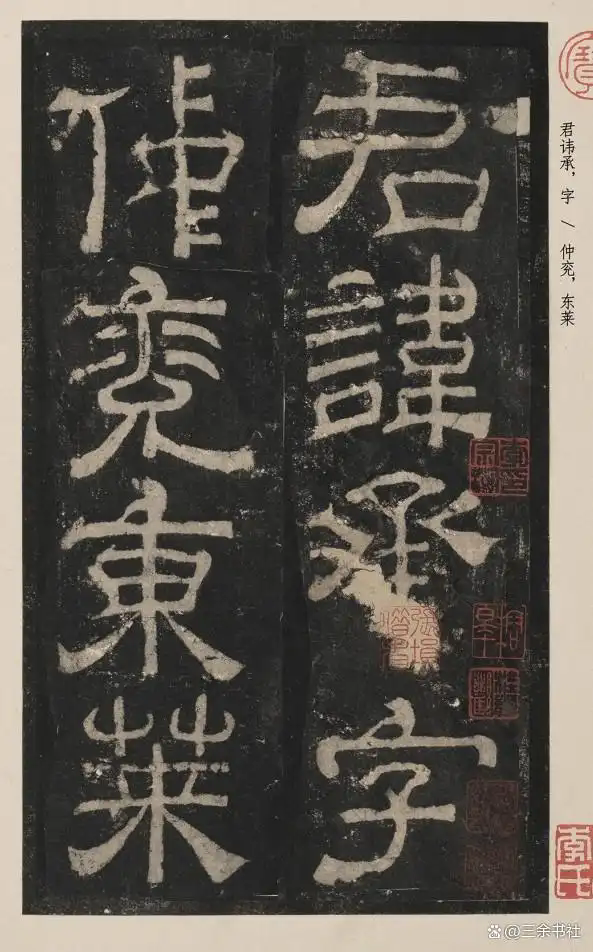 君諱承字
仲兖東萊
君讳承，字 \ 仲兖，东莱
李氏
@三余书社